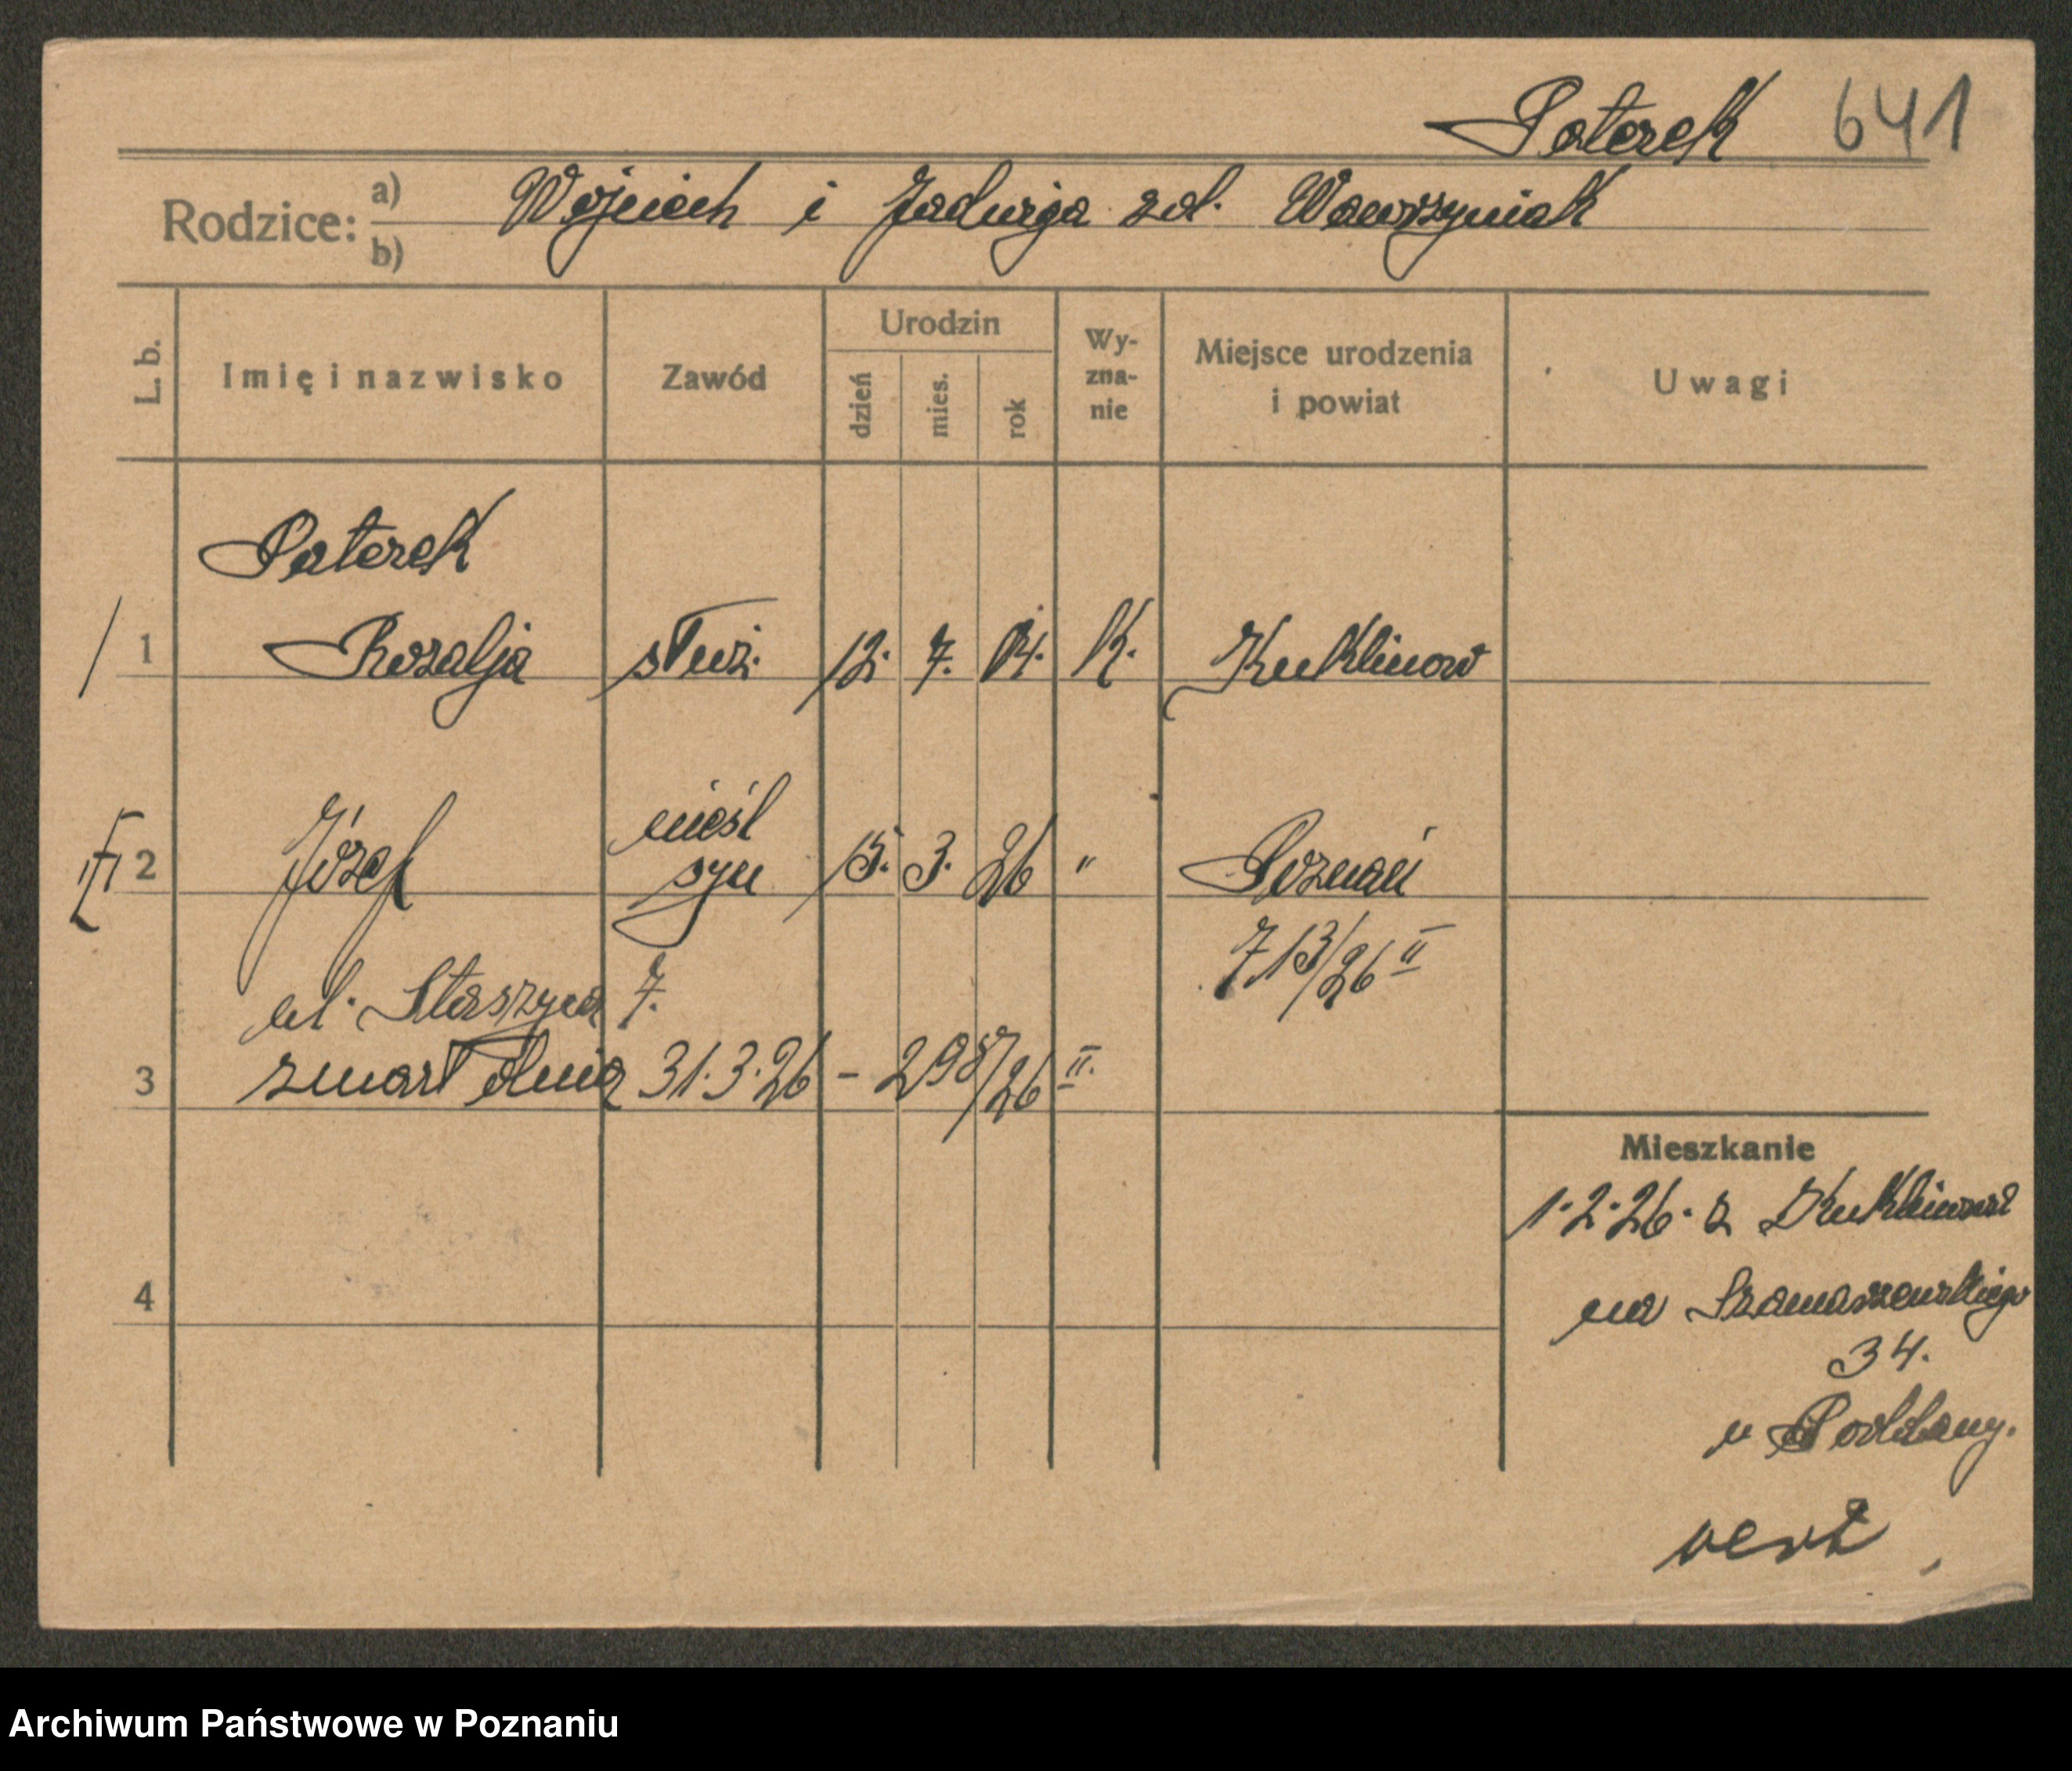 Paterek 641
Rodzice: a) b) Wojciech i Jadwiga zd. Wawrzyniak
L. b. Imię i nazwisko Zawód Urodzin dzień mies. rok Wy-zna-nie Miejsce urodzenia i powiat Uwagi
Paterek
1 Rozalja służ. 12. 7. 04. K. Kuklinow
2 Józef nieśl syn 15. 3. 26 " Poznań
713/26 II
ul. Staszyca 7.
3 zmarł dnia 31.3.26 – 298/26 II.
Mieszkanie
1.2.26. z Kuklinowa
na Szamarzewskiego
34.
4
u
vert
Archiwum Państwowe w Poznaniu